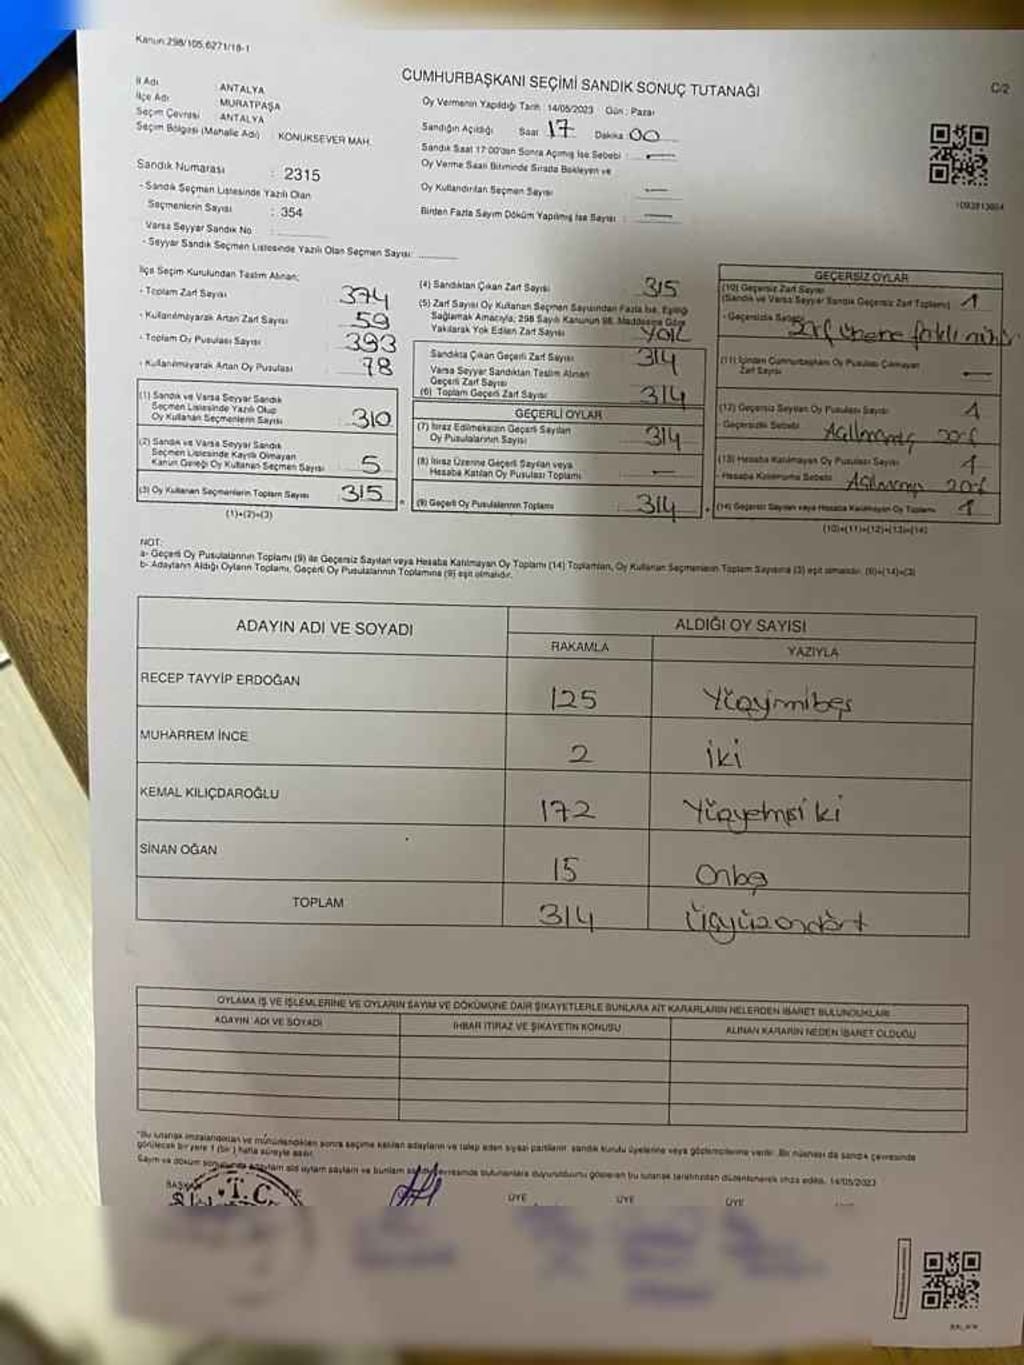 Kanun:298/105.6271/18-1
CUMHURBAŞKANI SEÇİMİ SANDIK SONUÇ TUTANAĞI
C/2
İl Adı : ANTALYA
İlçe Adı : MURATPAŞA
Seçim Çevresi : ANTALYA
Seçim Bölgesi (Mahalle Adı) : KONUKSEVER MAH.
Sandık Numarası : 2315
- Sandık Seçmen Listesinde Yazılı Olan
Seçmenlerin Sayısı : 354
Varsa Seyyar Sandık No :
- Seyyar Sandık Seçmen Listesinde Yazılı Olan Seçmen Sayısı:
Oy Vermenin Yapıldığı Tarih : 14/05/2023 Gün : Pazar
Sandığın Açıldığı Saat 17 Dakika 00
Sandık Saat 17:00'den Sonra Açılmış İse Sebebi : —
Oy Verme Saati Bitiminde Sırada Bekleyen ve
Oy Kullandırılan Seçmen Sayısı —
Birden Fazla Sayım Döküm Yapılmış İse Sayısı : —
İlçe Seçim Kurulundan Teslim Alınan;
- Toplam Zarf Sayısı 374
- Kullanılmayarak Artan Zarf Sayısı 59
- Toplam Oy Pusulası Sayısı 393
- Kullanılmayarak Artan Oy Pusulası 78
(1) Sandık ve Varsa Seyyar Sandık
Seçmen Listesinde Yazılı Olup
Oy Kullanan Seçmenlerin Sayısı 310
(2) Sandık ve Varsa Seyyar Sandık
Seçmen Listesinde Kayıtlı Olmayan
Kanun Gereği Oy Kullanan Seçmen Sayısı 5
(3) Oy Kullanan Seçmenlerin Toplam Sayısı 315
(1)+(2)=(3)
(4) Sandıktan Çıkan Zarf Sayısı 315
(5) Zarf Sayısı Oy Kullanan Seçmen Sayısından Fazla İse, Eşitliği
Sağlamak Amacıyla; 298 Sayılı Kanunun 98. Maddesine Göre
Yakılarak Yok Edilen Zarf Sayısı YOK
Sandıkta Çıkan Geçerli Zarf Sayısı 314
Varsa Seyyar Sandıktan Teslim Alınan
Geçerli Zarf Sayısı
(6) Toplam Geçerli Zarf Sayısı 314
GEÇERLİ OYLAR
(7) İtiraz Edilmeksizin Geçerli Sayılan
Oy Pusulalarının Sayısı 314
(8) İtiraz Üzerine Geçerli Sayılan veya
Hesaba Katılan Oy Pusulası Toplamı —
(9) Geçerli Oy Pusulalarının Toplamı 314
GEÇERSİZ OYLAR
(10) Geçersiz Zarf Sayısı
(Sandık ve Varsa Seyyar Sandık Geçersiz Zarf Toplamı) 1
- Geçersizlik Sebebi
(11) İçinden Cumhurbaşkanı Oy Pusulası Çıkmayan
Zarf Sayısı —
(12) Geçersiz Sayılan Oy Pusulası Sayısı 1
- Geçersizlik Sebebi
(13) Hesaba Katılmayan Oy Pusulası Sayısı 1
- Hesaba Katılmama Sebebi
(14) Geçersiz Sayılan veya Hesaba Katılmayan Oy Toplamı 1
(10)+(11)+(12)+(13)=(14)
NOT:
a- Geçerli Oy Pusulalarının Toplamı (9) ile Geçersiz Sayılan veya Hesaba Katılmayan Oy Toplamı (14) Toplamları, Oy Kullanan Seçmenlerin Toplam Sayısına (3) eşit olmalıdır. (9)+(14)=(3)
b- Adayların Aldığı Oyların Toplamı, Geçerli Oy Pusulalarının Toplamına (9) eşit olmalıdır.
ADAYIN ADI VE SOYADI ALDIĞI OY SAYISI
RAKAMLA YAZIYLA
RECEP TAYYİP ERDOĞAN 125 Yüzyirmibeş
MUHARREM İNCE 2 iki
KEMAL KILIÇDAROĞLU 172 Yüzyetmişiki
SİNAN OĞAN 15 Onbeş
TOPLAM 314 Üçyüzondört
OYLAMA İŞ VE İŞLEMLERİNE VE OYLARIN SAYIM VE DÖKÜMÜNE DAİR ŞİKAYETLERLE BUNLARA AİT KARARLARIN NELERDEN İBARET BULUNDUKLARI
ADAYIN ADI VE SOYADI İHBAR İTİRAZ VE ŞİKAYETİN KONUSU ALINAN KARARIN NEDEN İBARET OLDUĞU
"Bu tutanak imzalandıktan ve mühürlendikten sonra seçime katılan adayların ve talep eden siyasi partilerin sandık kurulu üyelerine veya gözlemcilerine verilir. Bir nüshası da sandık çevresinde
görülecek bir yere 1 (bir) hafta süreyle asılır.
14/05/2023
T.C.
ÜYE ÜYE ÜYE